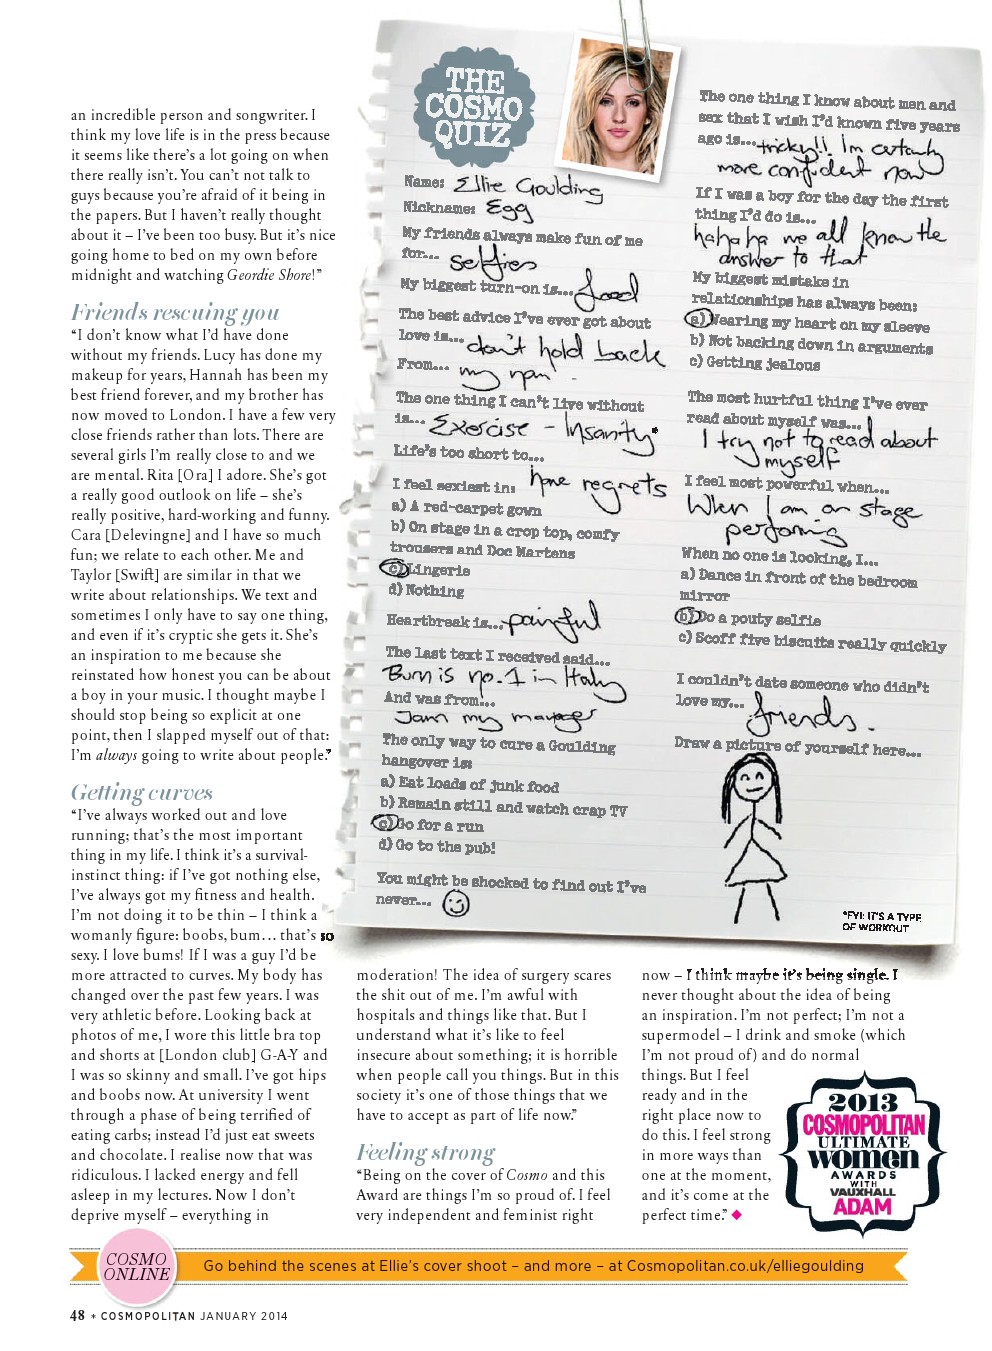 an incredible person and songwriter. I
think my love life is in the press because
it seems like there's a lot going on when
there really isn't. You can't not talk to
guys because you're afraid of it being in
the papers. But I haven't really thought
about it – I've been too busy. But it's nice
going home to bed on my own before
midnight and watching Geordie Shore!”
Friends rescuing you
“I don't know what I'd have done
without my friends. Lucy has done my
makeup for years, Hannah has been my
best friend forever, and my brother has
now moved to London. I have a few very
close friends rather than lots. There are
several girls I'm really close to and we
are mental. Rita [Ora] I adore. She's got
a really good outlook on life – she's
really positive, hard-working and funny.
Cara [Delevingne] and I have so much
fun; we relate to each other. Me and
Taylor [Swift] are similar in that we
write about relationships. We text and
sometimes I only have to say one thing,
and even if it's cryptic she gets it. She's
an inspiration to me because she
reinstated how honest you can be about
a boy in your music. I thought maybe I
should stop being so explicit at one
point, then I slapped myself out of that:
I'm always going to write about people.”
Getting curves
“I've always worked out and love
running; that's the most important
thing in my life. I think it's a survival-
instinct thing: if I've got nothing else,
I've always got my fitness and health.
I'm not doing it to be thin – I think a
womanly figure: boobs, bum… that's so
sexy. I love bums! If I was a guy I'd be
more attracted to curves. My body has
changed over the past few years. I was
very athletic before. Looking back at
photos of me, I wore this little bra top
and shorts at [London club] G-A-Y and
I was so skinny and small. I've got hips
and boobs now. At university I went
through a phase of being terrified of
eating carbs; instead I'd just eat sweets
and chocolate. I realise now that was
ridiculous. I lacked energy and fell
asleep in my lectures. Now I don't
deprive myself – everything in
THE
COSMO
QUIZ
Name: Ellie Goulding
Nickname: Egg
My friends always make fun of me
for... selfies
My biggest turn-on is... food
The best advice I've ever got about
love is... don't hold back
From... my mum
The one thing I can't live without
is... Exercise - Insanity*
Life's too short to...
have regrets
I feel sexiest in:
a) A red-carpet gown
b) On stage in a crop top, comfy
trousers and Doc Martens
c) Lingerie
d) Nothing
Heartbreak is... painful
The last text I received said...
Burn is no.1 in Italy
And was from...
Jamie my manager
The only way to cure a Goulding
hangover is:
a) Eat loads of junk food
b) Remain still and watch crap TV
c) Go for a run
d) Go to the pub!
You might be shocked to find out I've
never...
The one thing I know about men and
sex that I wish I'd known five years
ago is... tricky!! I'm certainly
more confident now
If I was a boy for the day the first
thing I'd do is...
hahaha we all know the
answer to that
My biggest mistake in
relationships has always been:
a) Wearing my heart on my sleeve
b) Not backing down in arguments
c) Getting jealous
The most hurtful thing I've ever
read about myself was...
I try not to read about
myself
I feel most powerful when...
When I am on stage
performing
When no one is looking, I...
a) Dance in front of the bedroom
mirror
b) Do a pouty selfie
c) Scoff five biscuits really quickly
I couldn't date someone who didn't
love my... friends.
Draw a picture of yourself here...
*FYI: IT'S A TYPE
OF WORKOUT
moderation! The idea of surgery scares
the shit out of me. I'm awful with
hospitals and things like that. But I
understand what it's like to feel
insecure about something; it is horrible
when people call you things. But in this
society it's one of those things that we
have to accept as part of life now.”
Feeling strong
“Being on the cover of Cosmo and this
Award are things I'm so proud of. I feel
very independent and feminist right
now – I think maybe it's being single. I
never thought about the idea of being
an inspiration. I'm not perfect; I'm not a
supermodel – I drink and smoke (which
I'm not proud of) and do normal
things. But I feel
ready and in the
right place now to
do this. I feel strong
in more ways than
one at the moment,
and it's come at the
perfect time.” ◆
2013
COSMOPOLITAN
ULTIMATE
women
AWARDS
WITH
VAUXHALL
ADAM
COSMO
ONLINE
Go behind the scenes at Ellie's cover shoot – and more – at Cosmopolitan.co.uk/elliegoulding
48 * COSMOPOLITAN JANUARY 2014